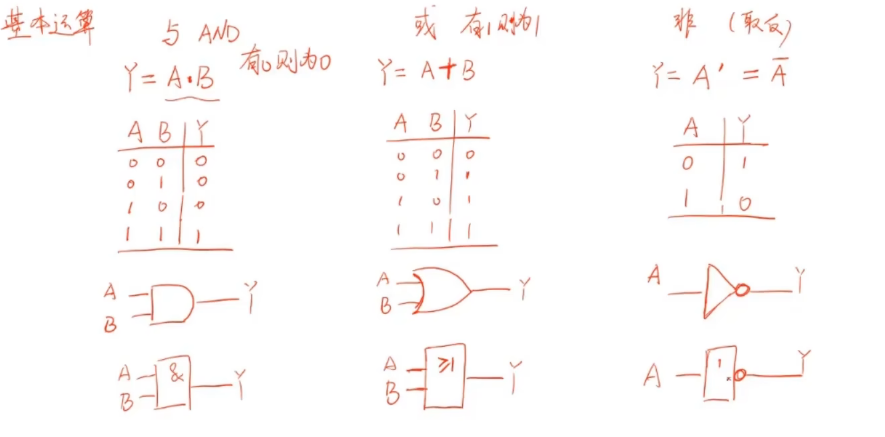 基本运算
与 AND
有0则为0
Y = A·B
A B Y
0 0 0
0 1 0
1 0 0
1 1 1
A
B
Y
A
B
&
Y
或 有1则为1
Y = A+B
A B Y
0 0 0
0 1 1
1 0 1
1 1 1
A
B
Y
A
B
≥1
Y
非 (取反)
Y = A' = A̅
A Y
0 1
1 0
A
Y
A
1
Y